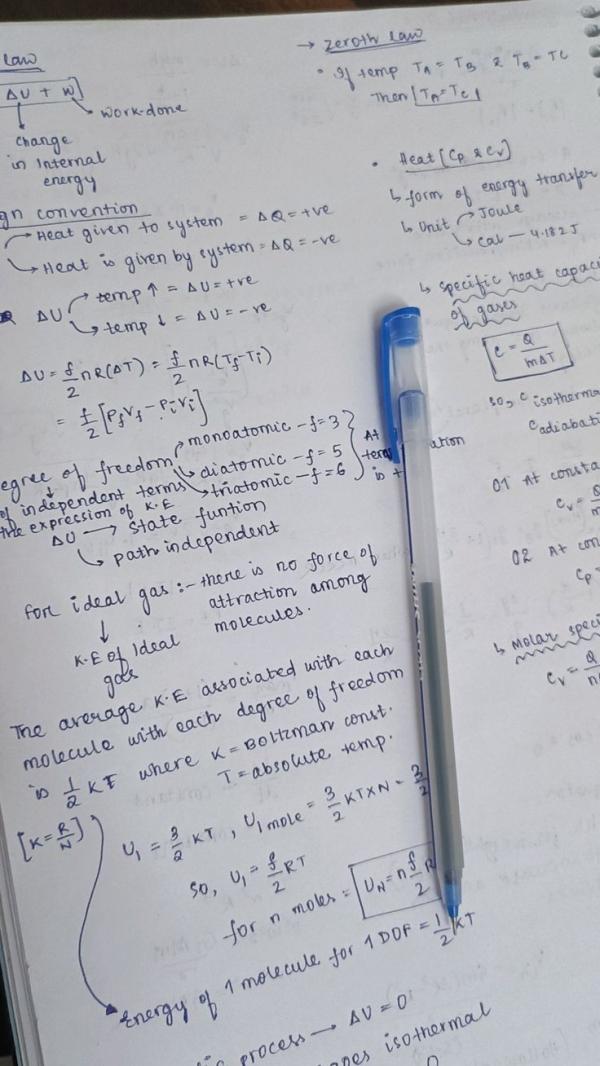 law
ΔU + W]
work-done
change
in Internal
energy
gn convention
Heat given to system = ΔQ = +ve
Heat is given by system = ΔQ = -ve
ΔU
temp ↑ = ΔU = +ve
temp ↓ = ΔU = -ve
ΔU = f/2 nR(ΔT) = f/2 nR(Tf - Ti)
= f/2 [PfVf - PiVi]
egree of freedom
monoatomic - f = 3
diatomic - f = 5
triatomic - f = 6
At
of independent terms
the expression of K.E
ΔU → state funtion
path independent
for ideal gas :- there is no force of
attraction among
molecules.
K.E of Ideal
gas
The average K.E associated with each
molecule with each degree of freedom
is 1/2 KT where K = Boltzman const.
T = absolute temp.
[K = R/N]
U1 = 3/2 KT, U1mole = 3/2 KT×N = 3/2
so, U1 = f/2 RT
for n moles = UN = n f/2 R
Energy of 1 molecule for 1 DOF = 1/2 KT
process → ΔU = 0
isothermal
→ Zeroth law
• If temp TA = TB & TB = TC
Then [TA = TC]
• Heat [Cp & Cv]
↳ form of energy transfer
↳ Unit
Joule
Cal — 4.182 J
↳ specific heat capaci
of gases
c = Q/mΔT
so, c isotherma
c adiabati
01 At consta
Cv = Q
02 At con
Cp =
↳ Molar speci
Cv = Q